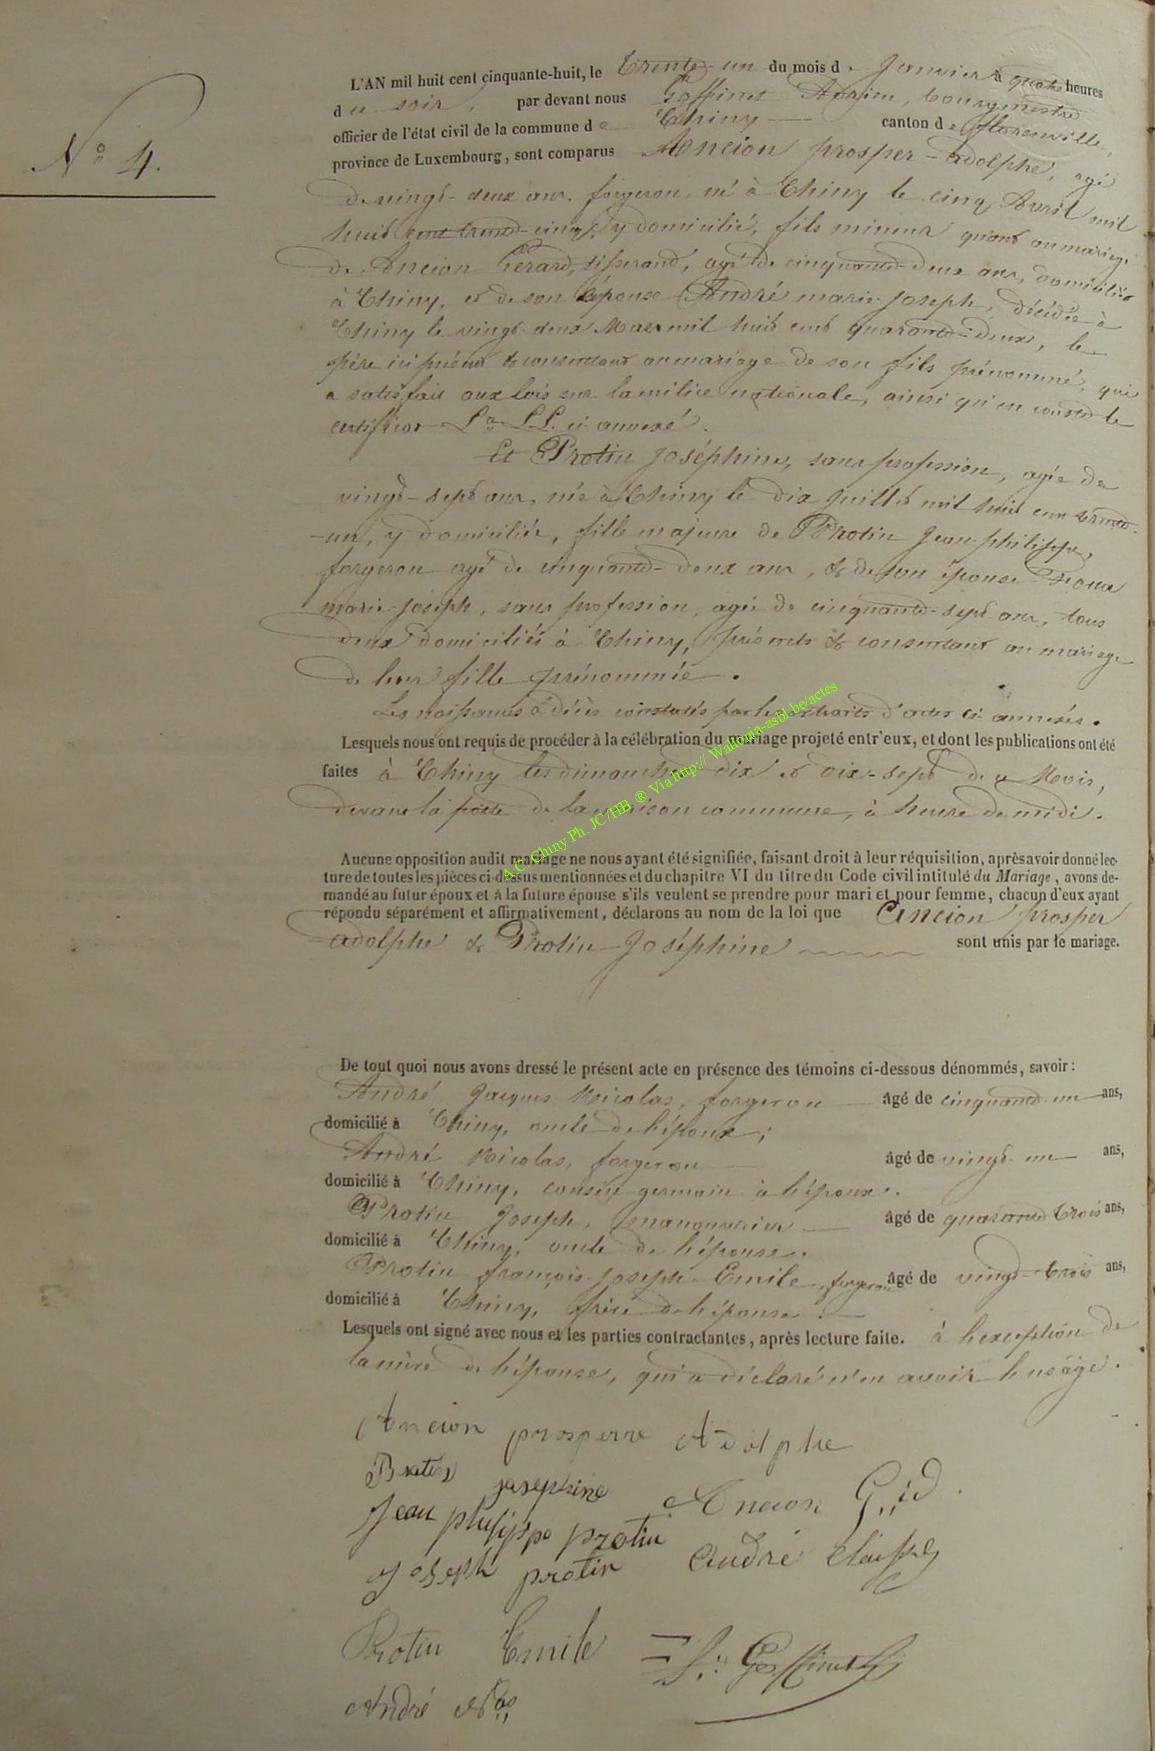 N° 4.
L'AN mil huit cent cinquante-huit, le trente-un du mois de Janvier à quatre heures
du soir, par devant nous Goffinet bourgmestre
officier de l'état civil de la commune de Chiny canton de florenville,
province de Luxembourg, sont comparus Ancion prosper-adolphe, agé
de vingt-deux ans, forgeron, né à Chiny le cinq Avril mil
huit cent trente-cinq, y domicilié, fils mineur quant au mariage
de Ancion Gérard, agé de cinquante-deux ans, domicilié
à Chiny, et de son épouse André marie-joseph, décédée à
Chiny le vingt-deux Mars mil huit cent quarante-deux, le
père ici présent & consentant au mariage de son fils prénommé, qui
a satisfait aux lois sur la milice nationale, ainsi qu'en conste le
certificat ci annexé.
Et Protin Joséphine, sans profession, agée de
vingt-sept ans, née à Chiny le dix juillet mil huit cent trente-
-un, y domiciliée, fille majeure de Protin Jean-philippe,
forgeron agé de cinquante-deux ans, & de son épouse
marie-joseph, sans profession, agée de cinquante-sept ans, tous
deux domiciliés à Chiny, présents & consentant au mariage
de leur fille prénommée.
Les naissances & décès constatés par les extraits d'actes ci annexés.
Lesquels nous ont requis de procéder à la célébration du mariage projeté entr'eux, et dont les publications ont été
faites à Chiny les dimanches dix et dix-sept de ce Mois,
devant la porte de la maison commune, à heure de midi.
A.C. Chiny Ph. JC/HB ® Via http:// Wallonia-asbl.be/actes
Aucune opposition audit mariage ne nous ayant été signifiée, faisant droit à leur réquisition, après avoir donné lec-
ture de toutes les pièces ci-dessus mentionnées et du chapitre VI du titre du Code civil intitulé du Mariage, avons de-
mandé au futur époux et à la future épouse s'ils veulent se prendre pour mari et pour femme, chacun d'eux ayant
répondu séparément et affirmativement, déclarons au nom de la loi que Ancion prosper
adolphe & Protin Joséphine sont unis par le mariage.
De tout quoi nous avons dressé le présent acte en présence des témoins ci-dessous dénommés, savoir:
André Jacques Nicolas, forgeron âgé de cinquante-un ans,
domicilié à Chiny, oncle de l'époux;
André Nicolas, forgeron âgé de vingt-un ans,
domicilié à Chiny, cousin germain à l'époux.
Protin Joseph, manouvrier âgé de quarante trois ans,
domicilié à Chiny, oncle de l'épouse.
Protin françois-Joseph-Emile, forgeron âgé de vingt-trois ans,
domicilié à Chiny, frère de l'épouse.
Lesquels ont signé avec nous et les parties contractantes, après lecture faite. à l'exception de
la mère de l'épouse, qui a déclaré n'en avoir l'usage.
Ancion prosperre Adolphe
Protin josephine
Ancion G..d
Jean philippe protin
joseph protin
André
Protin Emile
Goffinet
André N.as